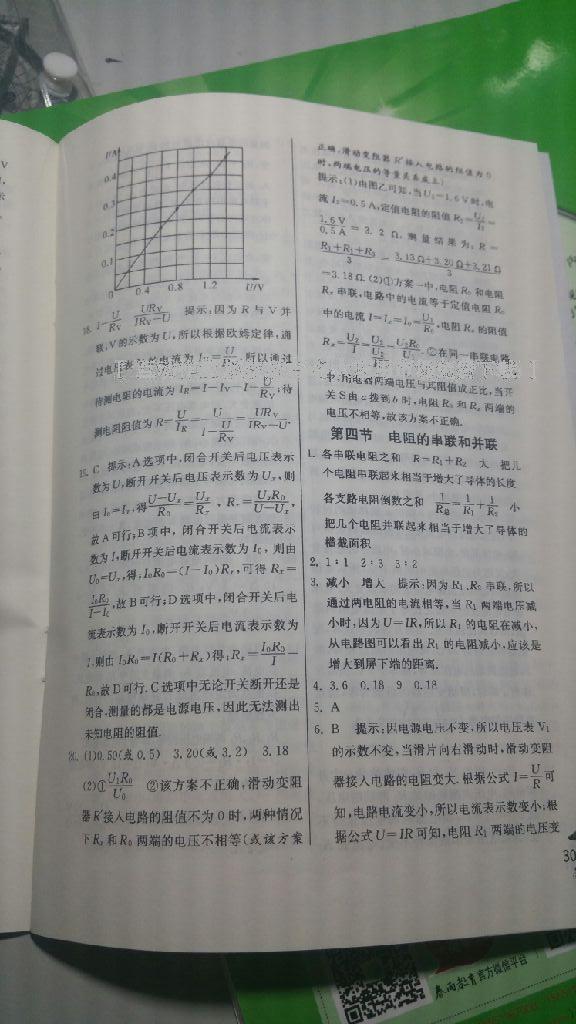 I/A
0.4
0.3
0.2
0.1
0
0.4
0.8
1.2
U/V
18. I-U/RV URV/(IRV-U) 提示:因为 R 与 V 并
联,V 的示数为 U,所以根据欧姆定律,通
过电压表的电流为 IV=U/RV,所以通过
待测电阻的电流为 IR=I-IV=I-U/RV;待
测电阻阻值为 R=U/IR=U/(I-U/RV)=URV/(IRV-U).
19. C 提示:A 选项中,闭合开关后电压表示
数为 U,断开开关后电压表示数为 Ux,则
由 I0=Ix,得(U-Ux)/R0=Ux/Rx,Rx=UxR0/(U-Ux),
故 A 可行;B 项中,闭合开关后电流表示
数为 I,断开开关后电流表示数为 I0,则由
U0=Ux,得:I0R0=(I-I0)Rx,可得 Rx=
I0R0/(I-I0),故 B 可行;D 选项中,闭合开关后电
流表示数为 I0,断开开关后电流表示数为
I,则由 I0R0=I(R0+Rx)得:Rx=I0R0/I-
R0,故 D 可行.C 选项中无论开关断开还是
闭合,测量的都是电源电压,因此无法测出
未知电阻的阻值.
20. (1)0.50(或 0.5) 3.20(或 3.2) 3.18
(2)①U1R0/U0 ②该方案不正确,滑动变阻
器 R′接入电路的阻值不为 0 时,两种情况
下 Rx 和 R0 两端的电压不相等(或该方案
正确,滑动变阻器 R′接入电路的阻值为 0
时,两端电压的等量关系成立)
提示:(1)由图乙可知,当 U2=1.6 V 时,电
流 I2=0.5 A;定值电阻的阻值 R2=U2/I2=
1.6 V/0.5 A=3.2 Ω,测量结果为:R=
(R1+R2+R3)/3=(3.13 Ω+3.20 Ω+3.21 Ω)/3
=3.18 Ω.(2)①方案一中,电阻 R0 和电阻
Rx 串联,电路中的电流等于定值电阻 R0
中的电流 I=Ix=I0=U1/R0,电阻 Rx 的阻值
②在同一串联电路
中,用电器两端电压与其阻值成正比,当开
关 S 由 a 拨到 b 时,电阻 Rx 和 Rx 两端的
电压不相等,故该方案不正确.
第四节 电阻的串联和并联
1. 各串联电阻之和 R=R1+R2 大 把几
个电阻串联起来相当于增大了导体的长度
各支路电阻倒数之和 1/R总=1/R1+1/R2 小
把几个电阻并联起来相当于增大了导体的
横截面积
2. 1∶1 2∶3 3∶2
3. 减小 增大 提示:因为 R1、R2 串联,所以
通过两电阻的电流相等,当 R1 两端电压减
小时,因为 U=IR,所以 R1 的电阻在减小,
从电路图可以看出 R1 的电阻减小,应该是
增大到屏下端的距离.
4. 3.6 0.18 9 0.18
5. A
6. B 提示:因电源电压不变,所以电压表 V1
的示数不变,当滑片向右滑动时,滑动变阻
器接入电路的电阻变大.根据公式 I=U/R可
知,电路电流变小,所以电流表示数变小;根
据公式 U=IR 可知,电阻 R1 两端的电压变
30
春雨教育官方微信平台